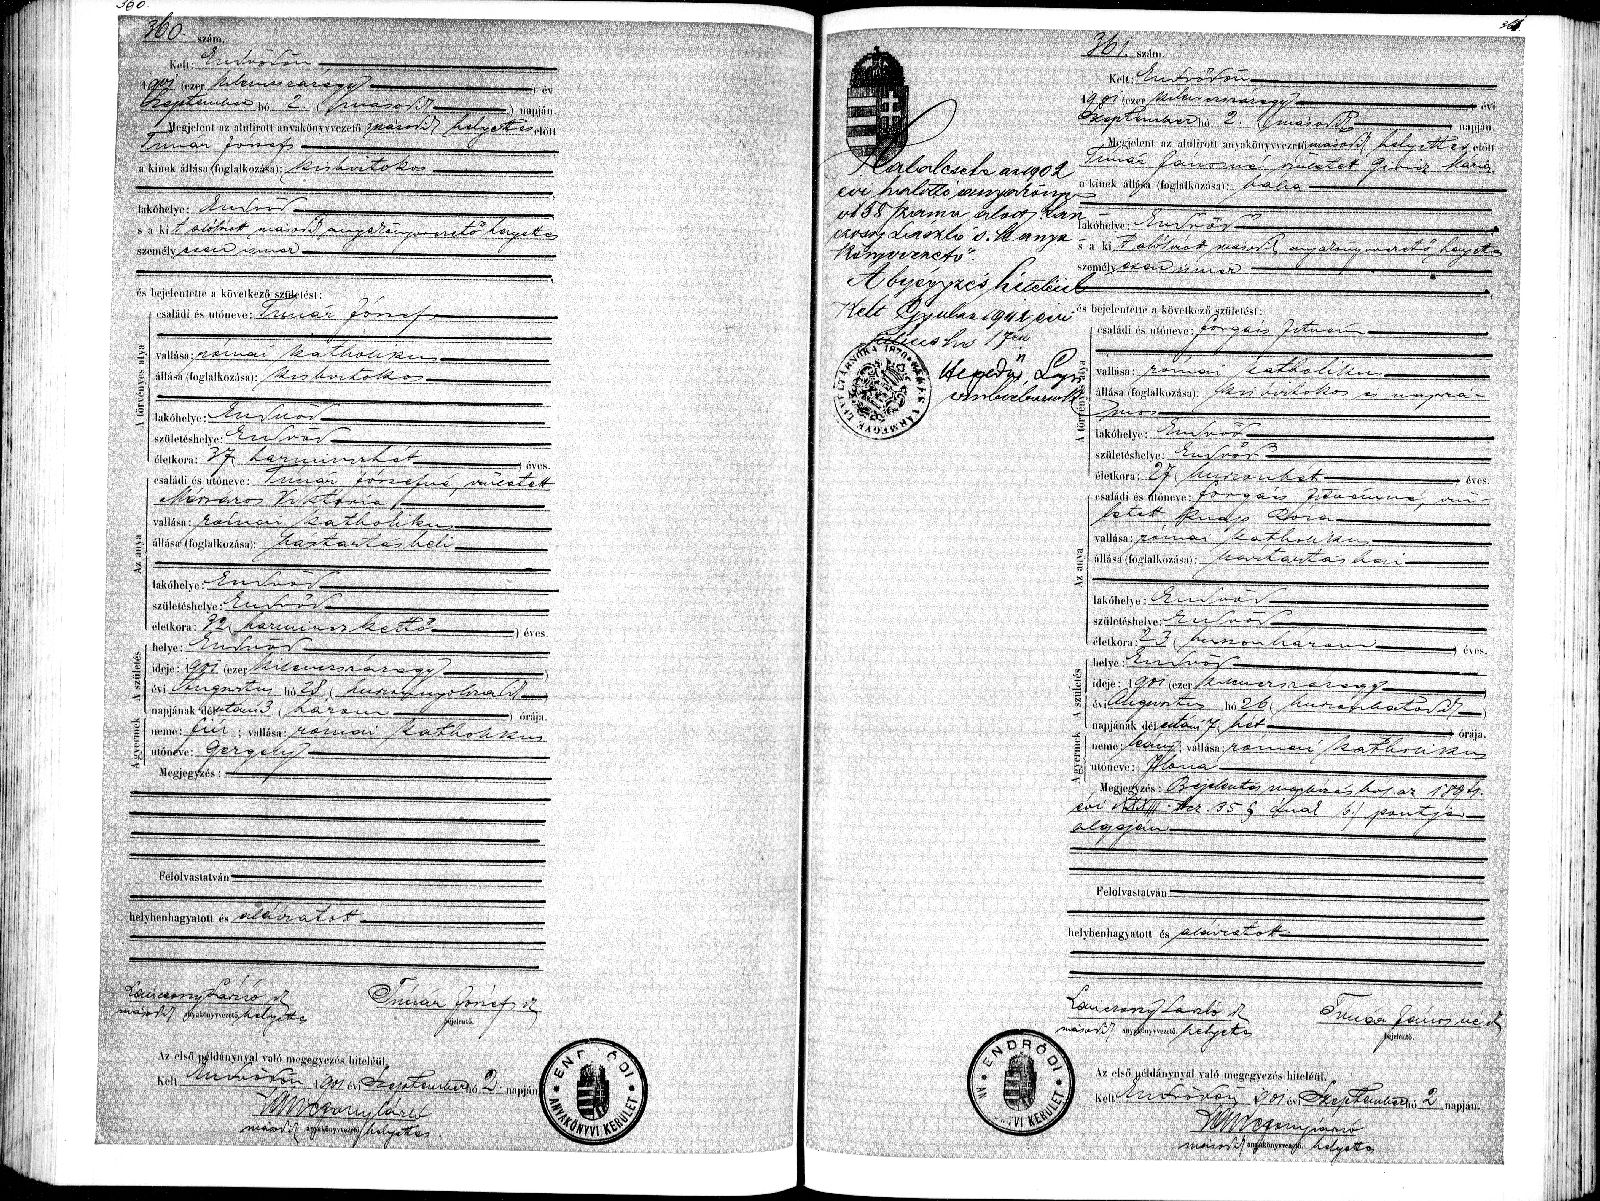 360.
360. szám.
Kelt: Endrődön
1901 (ezer kilenczszázegy) év
Szeptember hó 2. (második) napján
Megjelent az alulírott anyakönyvvezető második helyettes előtt
Tímár József
a kinek állása (foglalkozása): kisbirtokos
lakóhelye: Endrőd
s a kit alólírt második anyakönyvvezető helyettes
személyesen ismer
és bejelentette a következő születést:
A törvényes atya
családi és utóneve: Tímár József
vallása: római katholikus
állása (foglalkozása): kisbirtokos
lakóhelye: Endrőd
születéshelye: Endrőd
életkora: 37 (harminczhét) éves.
Az anya
családi és utóneve: Tímár Józsefné, született
Mészáros Viktória
vallása: római katholikus
állása (foglalkozása): háztartásbeli
lakóhelye: Endrőd
születéshelye: Endrőd
életkora: 32 (harminczkettő) éves.
A születés
helye: Endrőd
ideje: 1901 (ezer kilenczszázegy)
évi Augusztus hó 28 (huszonnyolczadik)
napjának délután 3 (három) órája.
A gyermek
neme: fiú; vallása: római katholikus
utóneve: Gergely
Megjegyzés:
Felolvastatván
helybenhagyatott és aláíratott
Lancsony László sk
második anyakönyvvezető helyettes
Tímár József sk
bejelentő.
Az első példánynyal való megegyezés hiteléül.
Kelt Endrődön 1901 évi Szeptember hó 2 napján
második anyakönyvvezető helyettes.
ENDRŐDI ANYAKÖNYVI KERÜLET
361
361. szám.
Kelt: Endrődön
1901 (ezer kilenczszázegy) évi
Szeptember hó 2. (második) napján
Megjelent az alulírott anyakönyvvezető második helyettes előtt
Tímár Jánosné, született Mária
a kinek állása (foglalkozása): bába
lakóhelye: Endrőd
s a kit alólírott második anyakönyvvezető helyettes
személyesen ismer
és bejelentette a következő születést:
A törvényes atya
családi és utóneve: Forgács István
vallása: római katholikus
állása (foglalkozása): kisbirtokos és napszá-
mos
lakóhelye: Endrőd
születéshelye: Endrőd
életkora: 27 (huszonhét) éves.
Az anya
családi és utóneve: Forgács Istvánné, szü-
letett
vallása: római katholikus
állása (foglalkozása): háztartásbeli
lakóhelye: Endrőd
születéshelye: Endrőd
életkora: 23 (huszonhárom) éves.
A születés
helye: Endrőd
ideje: 1901 (ezer kilenczszázegy)
évi Augusztus hó 26 (huszonhatodik)
napjának délután 7 hét órája.
A gyermek
neme: leány; vallása: római katholikus
utóneve: Ilona
Megjegyzés: Bejelentés megbízásból az 1894.
évi XXXIII. t.cz. 35 § b/ pontja
alapján
Felolvastatván
helybenhagyatott és aláíratott
Lancsony László sk
második anyakönyvvezető helyettes
Tímár Jánosné sk
bejelentő.
Az első példánynyal való megegyezés hiteléül.
Kelt Endrődön 1901 évi Szeptember hó 2 napján.
második anyakönyvvezető helyettes
ENDRŐDI ANYAKÖNYVI KERÜLET
az 1902
évi halotti anyakönyv
158 szám alatt
László s. k. anya
könyvvezető
A bejegyzés hiteléül
Kelt Gyulán 1942 évi
július hó 17én
Hegedűs
BÉKÉS VÁRMEGYE LEVÉLTÁRNOKA 1870